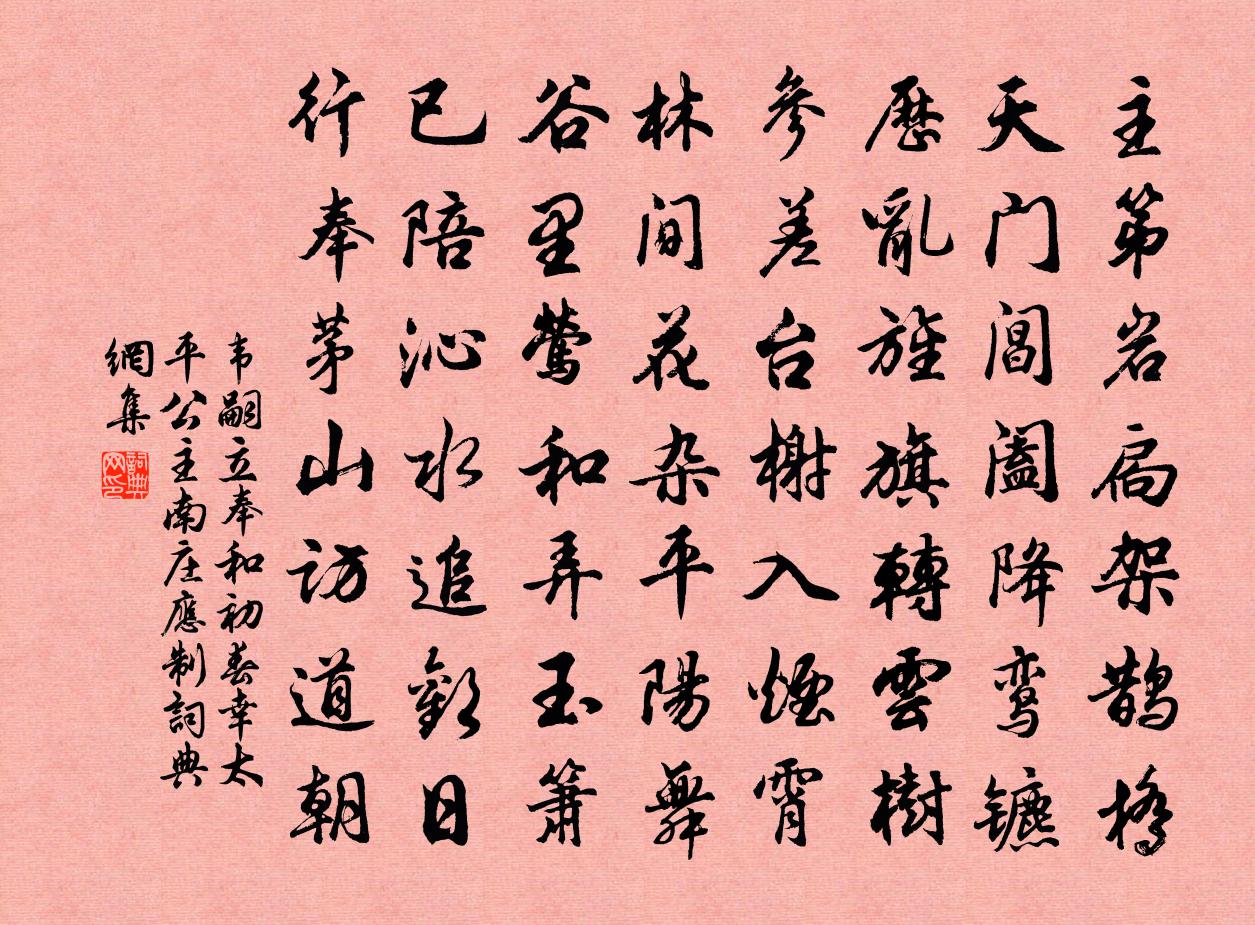 主第岩扃架鹊橋
天门阊阖降鸾镳
歷亂旌旗轉雲樹
參差台榭入煙霄
林间花杂平陽舞
谷里莺和弄玉箫
已陪沁水追歡日
行奉茅山访道朝
韦嗣立奉和初春幸太
平公主南庄應制詞典
網集
詞典
网印